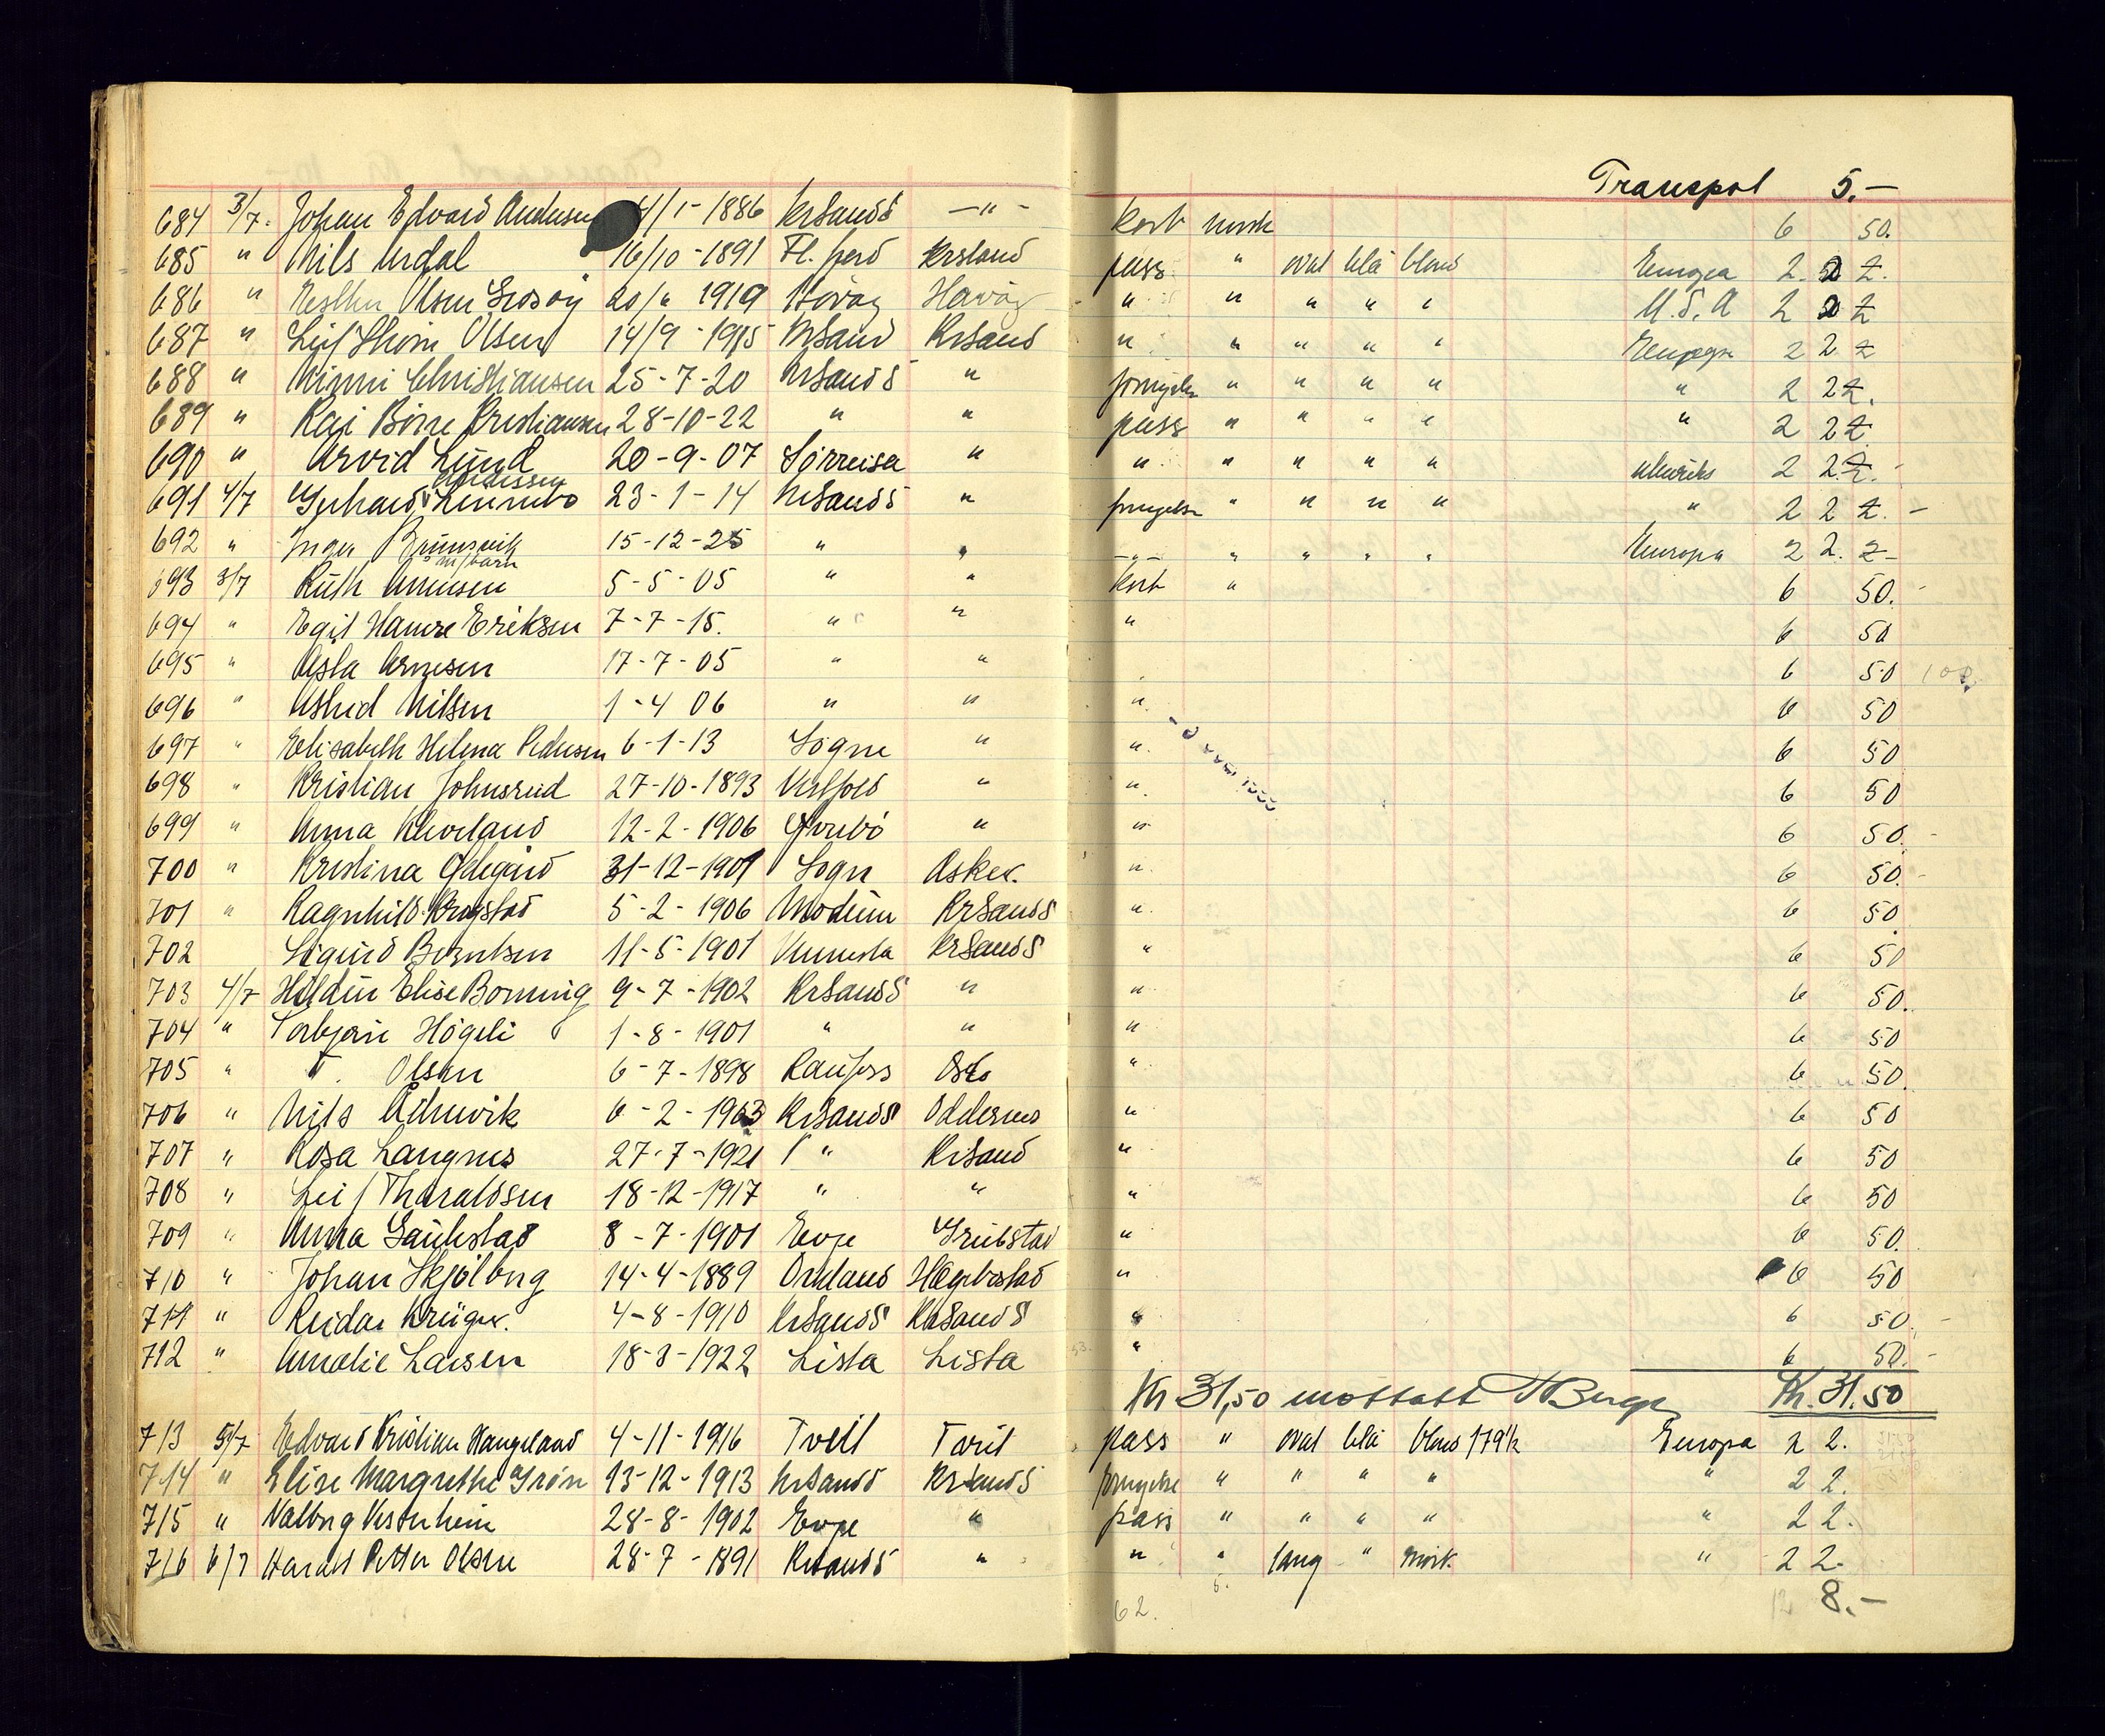 Transport 5.-
684 3/7. Johan Edvard Andersen 4/1-1886 KrSandS -"- kort norsk 6 50.
685 " Nils Urdal 16/10-1891 Fl. fjord Krsand pass " oval blå blond Europa 2 2.
686 " Esther Olsen 20/6 1919 Høvåg Høvåg " " " " " U.S.A 2 2
687 " Leif Olsen 14/9-1915 KrSand KrSand " " " " " Europa 2 2 2
688 " Christiansen 25-7-20 KrSandS " fornyelse " " " " " 2 2 2.
689 " Kristiansen 28-10-22 " " pass " " " " " 2 2 2
690 " Arvid Lund 20-9-07 Sörreisa " " " " " " 2 2 2.-
691 4/7 Gerhard 23-1-14 KrSandS " fornyelse " " " " " 2 2 2.-
692 " Inger 15-12-25 " " -"- " " " " Europa 2 2. 2-
693 3/7 Ruth m/barn 5-5-05 " " kort " 6 50.-
694 " Egil Hamre Eriksen 7-7-15. " " " 6 50
695 " Asla Arnesen 17-7-05 " " " 6 50
696 " Astrid Nilsen 1-4 06 " " " 6 50
697 " Elisabeth Helena Pedersen 6-1-13 Sögne " " 6 50
698 " Kristian Johnsrud 27-10-1893 Vestfold " " 6 50
699 " Anna Kleveland 12-2-1906 " " 6 50.-
700 " Kristina Ødegård 31-12-1901 Sogn Asker. " 6 50.-
701 " Ragnhild Krogstad 5-2-1906 Modum KrSandS " 6 50
702 Sigurd Berntsen 11-5-1901 KrSandS " 6 50
703 4/7 Elise 9-7-1902 KrSandS " " 6 50.
704 " Torbjørn Högeli 1-8-1901 " " " 6 50
705 " T. Olsen 6-7-1898 Raufoss Oslo " 6 50.
706 " Nils 6-2-1903 KrSandS Oddernes " 6 50
707 " Rosa Langnes 27-7-1921 " KrSand " 6 50
708 " Leif Tharaldsen 18-12-1917 " " " 6 50
709 " Anna Gaukstad 8-7-1901 Evje Grimstad " 6 50.
710 " Johan Skjölberg 14-4-1889 Hægebostad " 6 50
711 " Reidar Krüger. 4-8-1910 KrSandS KrSandS " 6 50.-
712 " Amalie Larsen 18-3-1922 Lista Lista " 6 50.-
Kr 31,50 mottatt Kr. 31.50
713 5/7 Edvard Kristian Haugeland 4-11-1916 Tveit Tveit pass " oval blå blond 179½ Europa 2 2.
714 " Elise Margrethe Grön 13-12-1913 KrSandS KrSandS fornyelse " " " " " 2 2.
715 " Valborg Vesterheim 28-8-1902 Evje " pass " " " " " 2 2.
716 6/7 Harald Petter Olsen 28-7-1891 KrSandS " " " lang " mørk. " 2 2.
62. 12 8.-